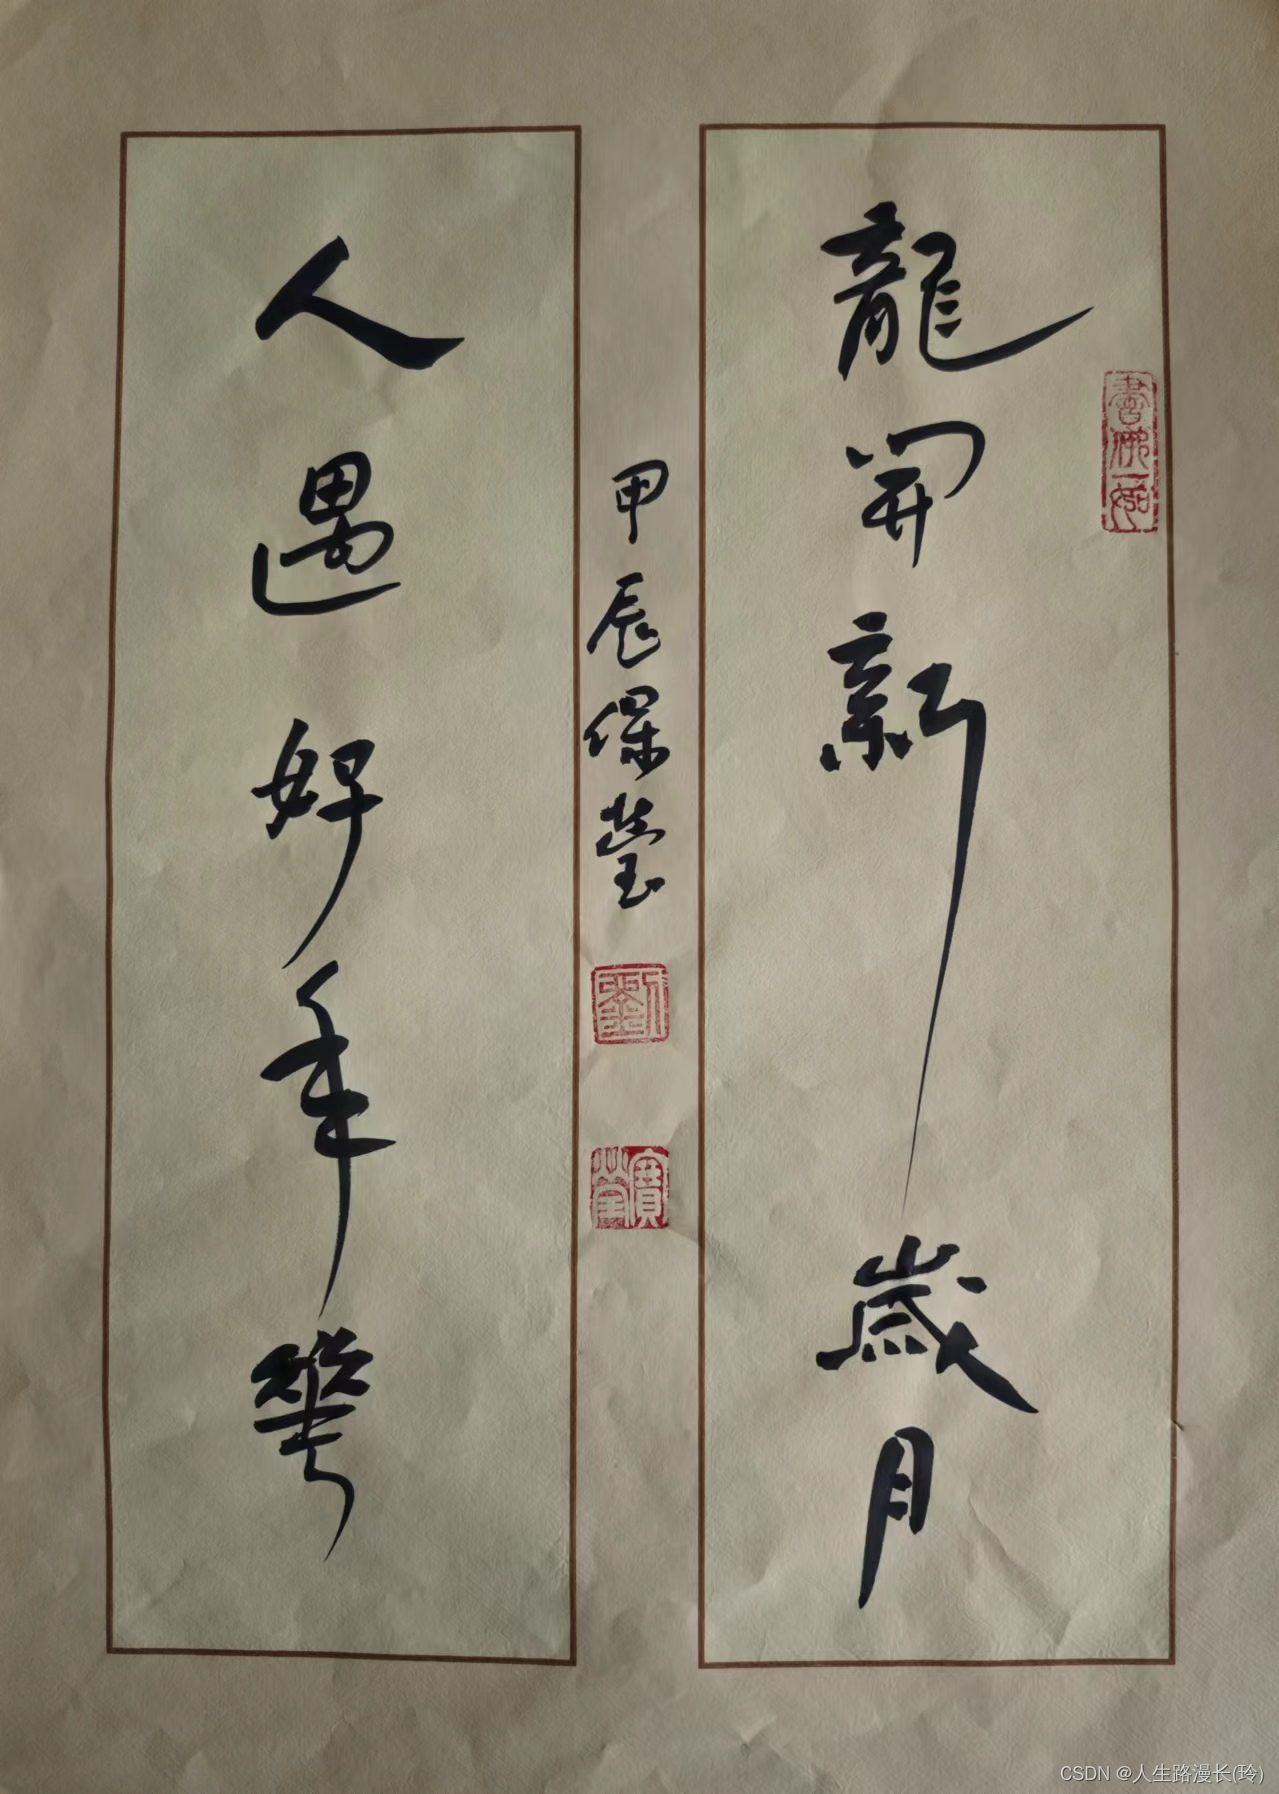 龍開新歲月
人遇好年華
甲辰保瑩
劉
寶瑩
CSDN @人生路漫长(玲)